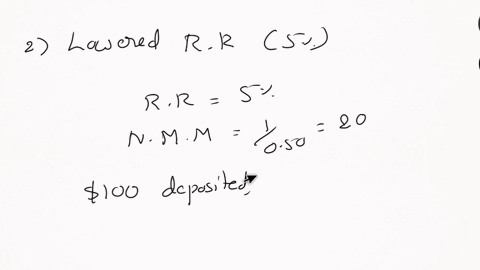 2) Lowered R.R (5%)
R.R = 5%
N.M.M = 1/0.50 = 20
$100 deposited,